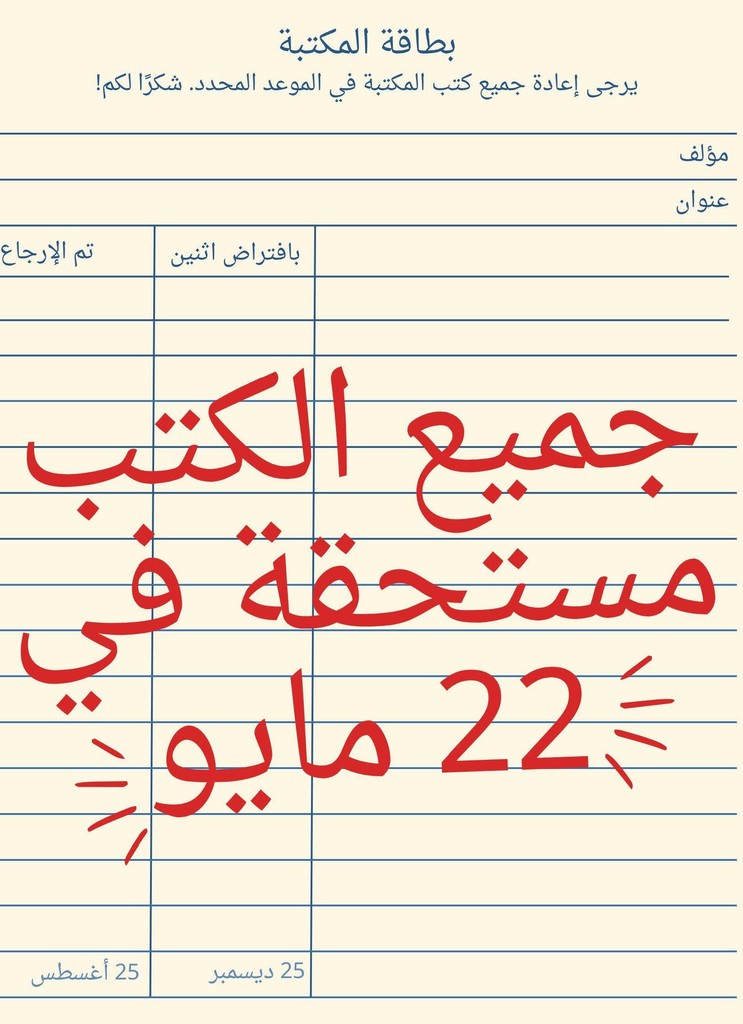 بطاقة المكتبة
يرجى إعادة جميع كتب المكتبة في الموعد المحدد. شكرًا لكم!
مؤلف
عنوان
بافتراض اثنين
تم الإرجاع
جميع الكتب
مستحقة في
22 مايو
25 ديسمبر
25 أغسطس